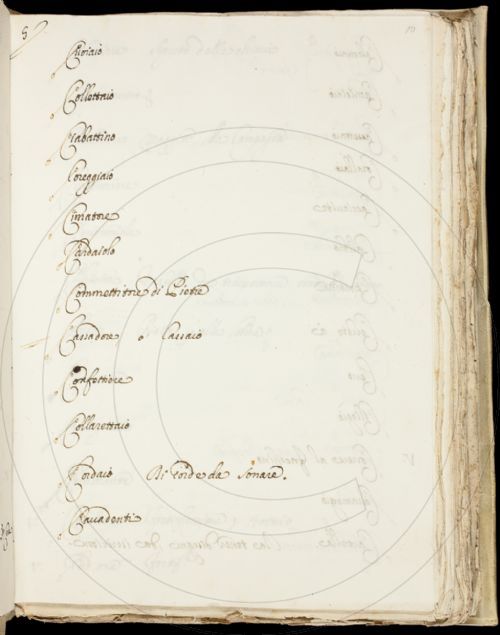 10
Cuoiaio
Collettaio
Ciabattino
Coreggiaio
Cimatore
Cardaiolo
Commettitore di Pietre
Cassadore o Cassaio
Confettiere
Collarettaio
Cordaio Di corde da sonare.
Cavadenti